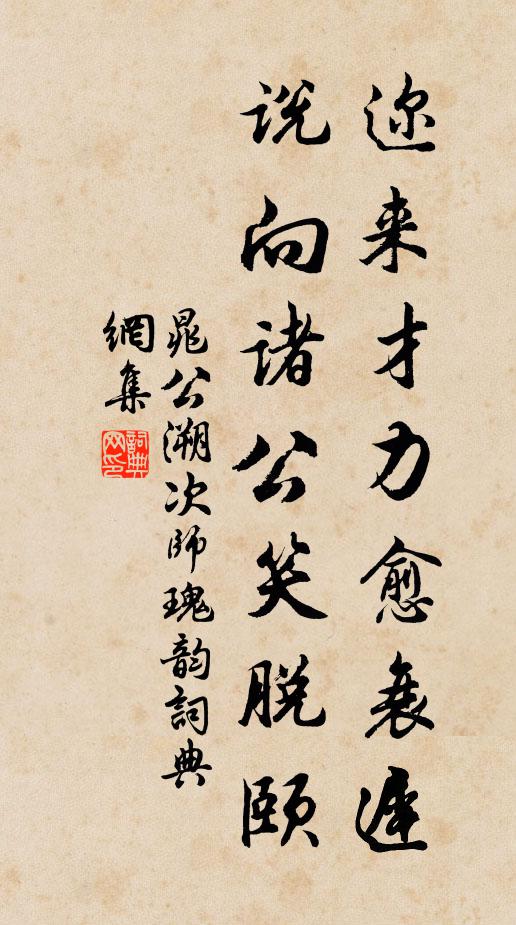 迩来才力愈衰遲
说向诸公笑脱颐
晁公溯次师瑰韵詞典
網集
詞典
网印